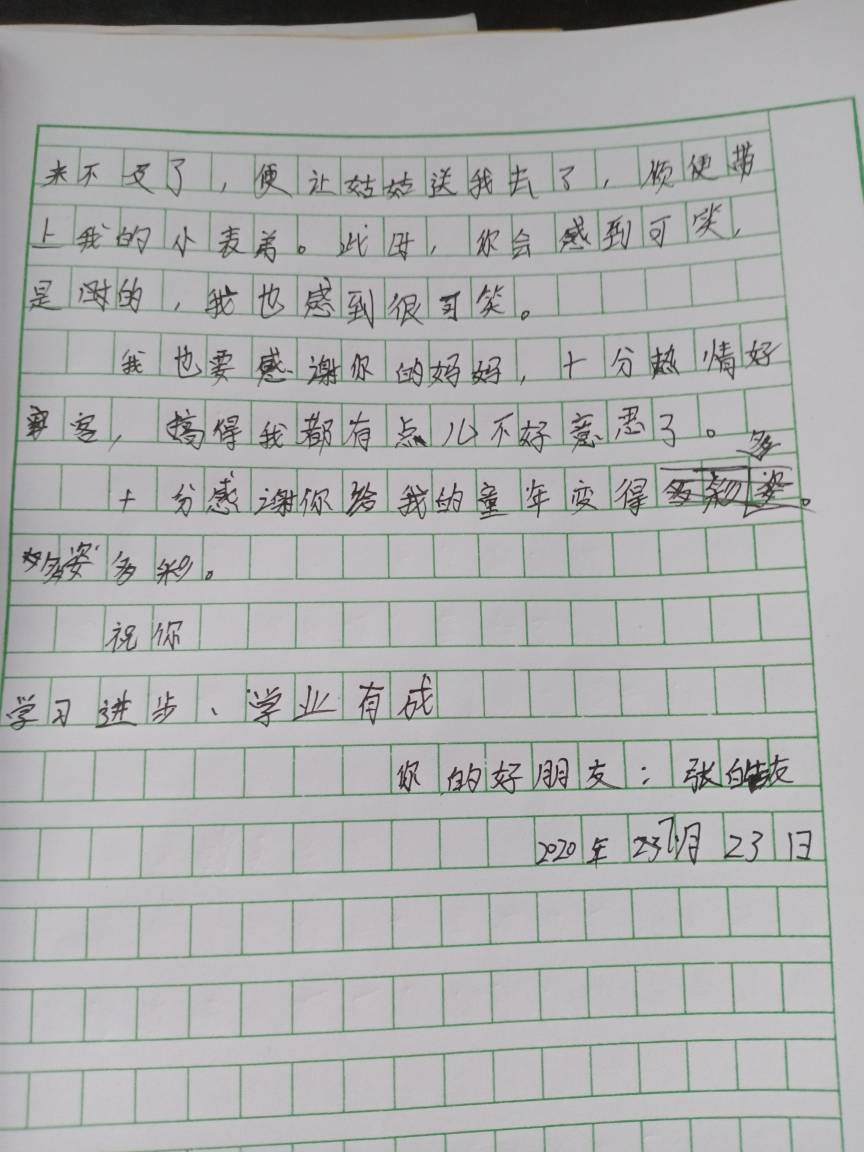 来不及了，便让姑姑送我去了，顺便带
上我的小表弟。此时，你会感到可笑，
是的，我也感到很可笑。
我也要感谢你的妈妈，十分热情好
客，搞得我都有点儿不好意思了。
十分感谢你给我的童年变得
多姿多彩。
祝你
学习进步、学业有成
你的好朋友：张
2020年 月23日